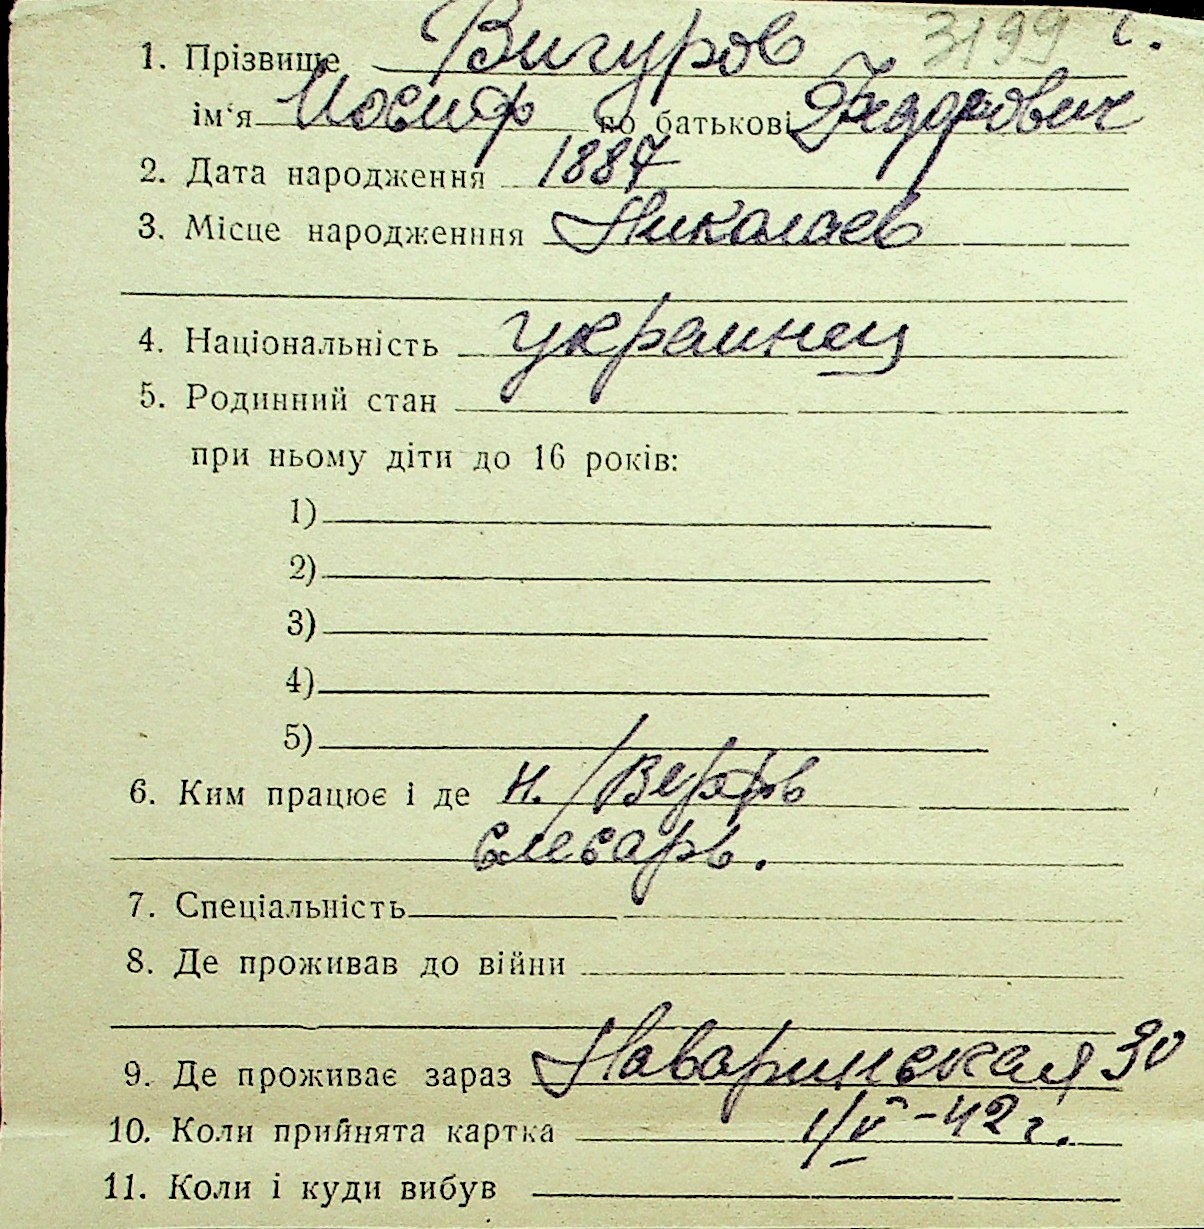 1. Прізвище Вигуров 3199 г.
ім‘я Иосиф по батькові Федорович
2. Дата народження 1887
3. Місце народженння Николаев
4. Національність украинец
5. Родинний стан
при ньому діти до 16 років:
1)
2)
3)
4)
5)
6. Ким працює і де Н./Верфь
слесарь.
7. Спеціальність
8. Де проживав до війни
9. Де проживає зараз Наваринская 30
10. Коли прийнята картка 1/V-42 г.
11. Коли і куди вибув